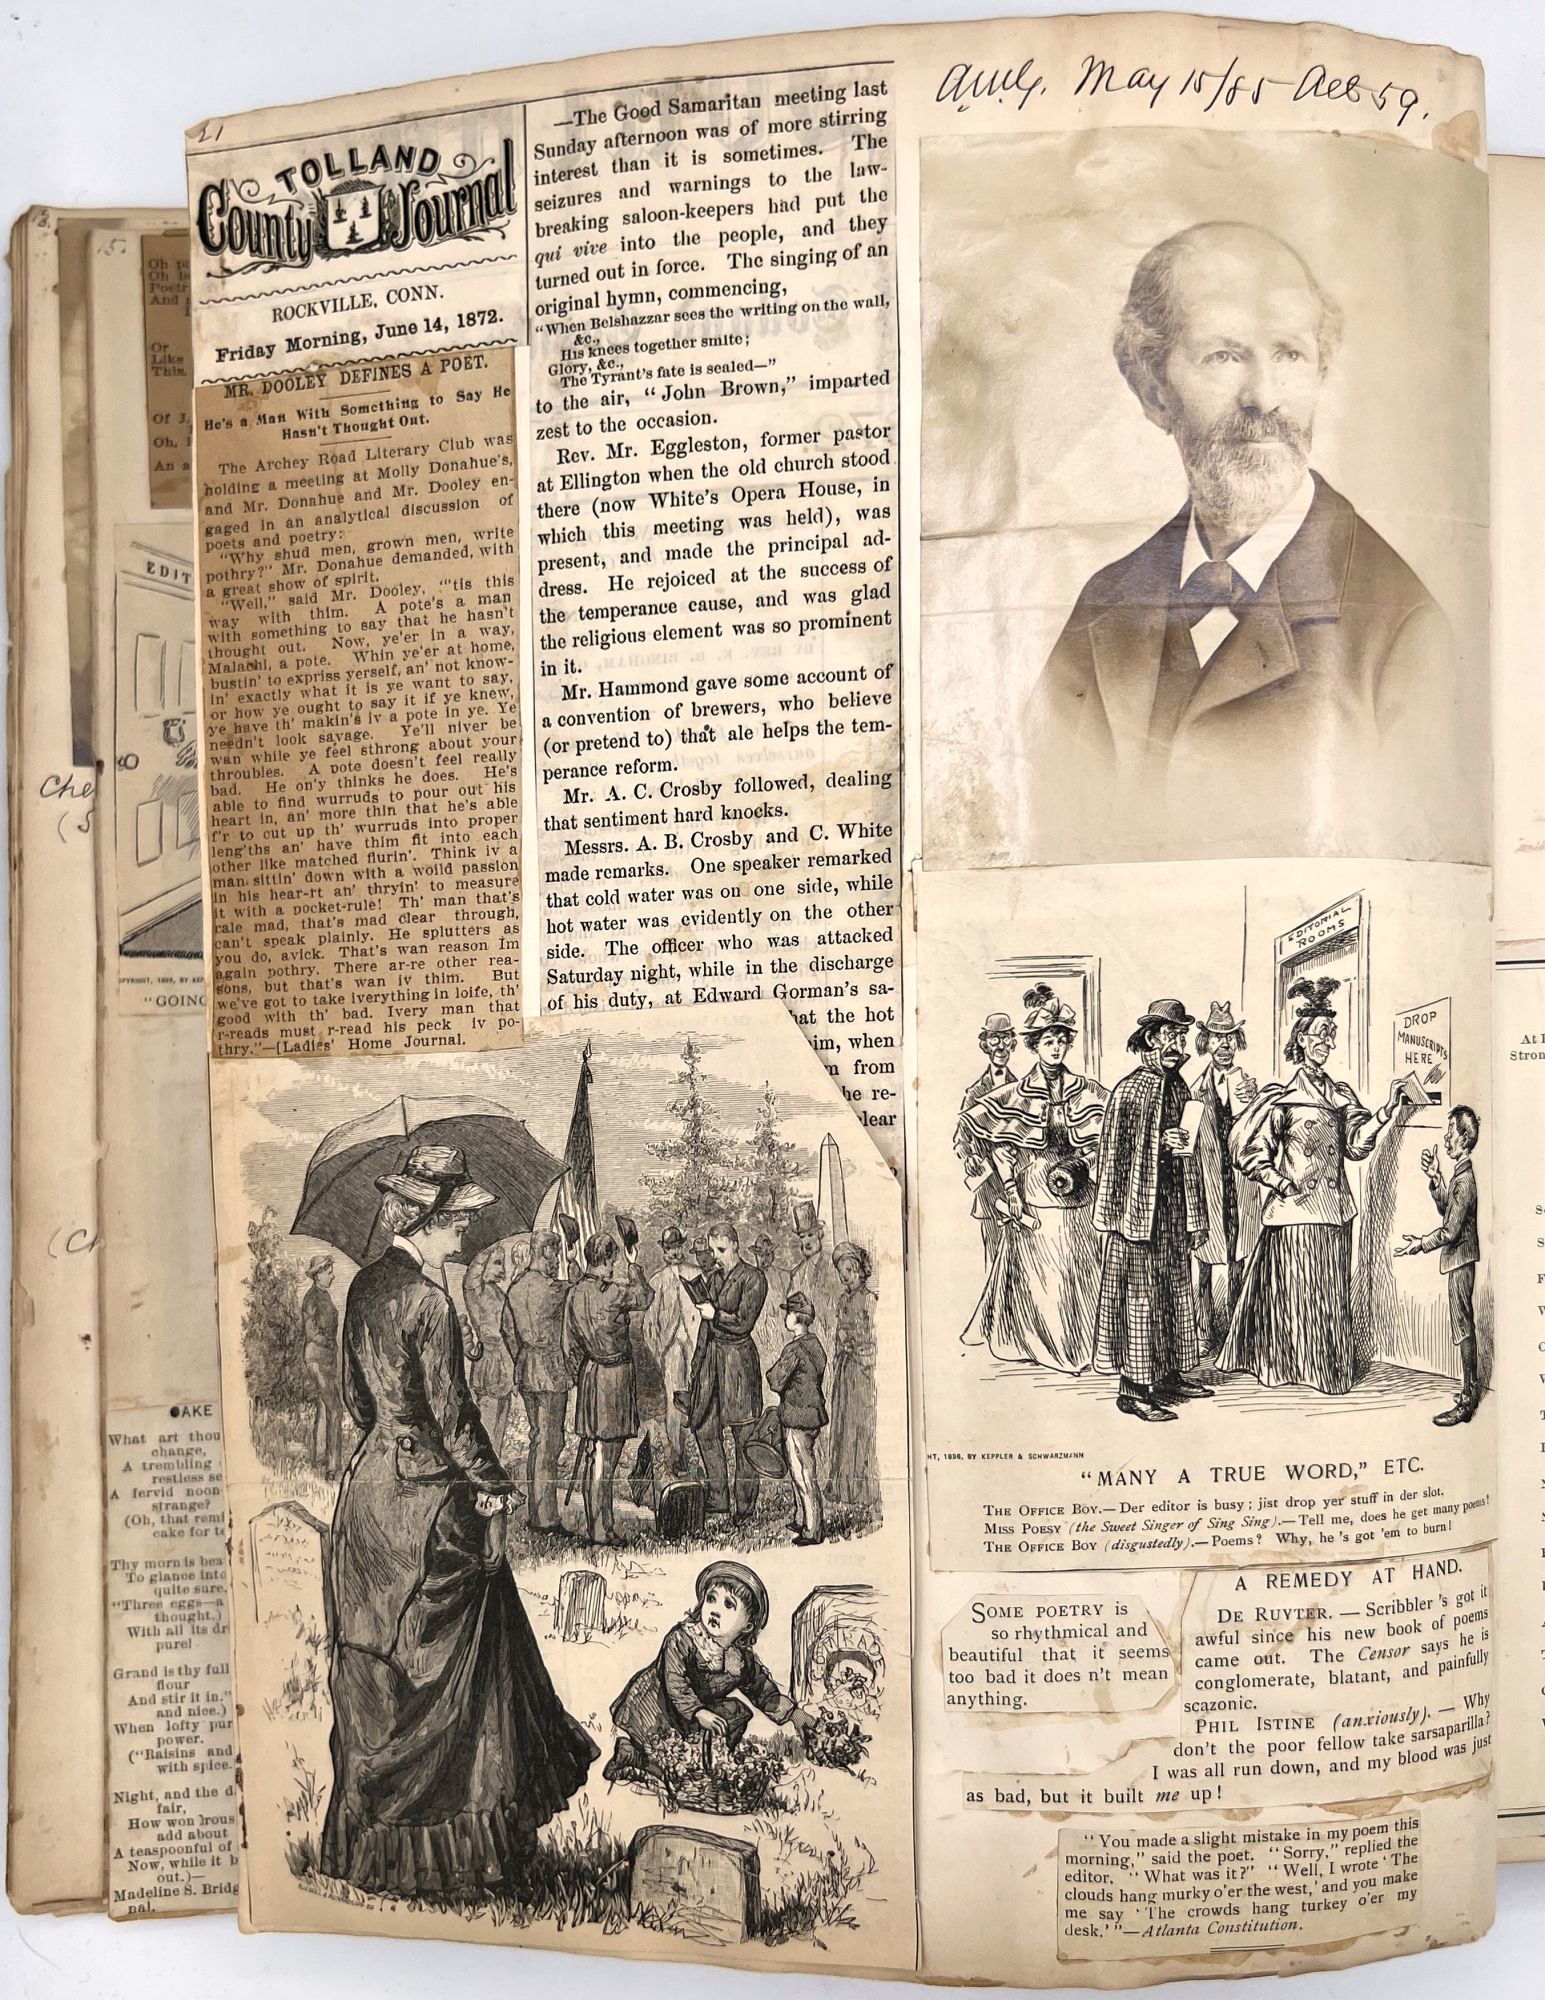 21
TOLLAND
County Journal
ROCKVILLE, CONN.
Friday Morning, June 14, 1872.
MR. DOOLEY DEFINES A POET.
He's a Man With Something to Say He
Hasn't Thought Out.
The Archey Road Literary Club was
holding a meeting at Molly Donahue's,
and Mr. Donahue and Mr. Dooley en-
gaged in an analytical discussion of
poets and poetry:
"Why shud men, grown men, write
pothry?" Mr. Donahue demanded, with
a great show of spirit.
"Well," said Mr. Dooley, "'tis this
way with thim. A pote's a man
with something to say that he hasn't
thought out. Now, ye'er in a way,
Malachi, a pote. Whin ye'er at home,
bustin' to expriss yerself, an' not know-
in' exactly what it is ye want to say,
or how ye ought to say it if ye knew,
ye have th' makin's iv a pote in ye. Ye
needn't look savage. Ye'll niver be
wan while ye feel sthrong about your
throubles. A pote doesn't feel really
bad. He on'y thinks he does. He's
able to find wurruds to pour out his
heart in, an' more thin that he's able
f'r to cut up th' wurruds into proper
leng'ths an' have thim fit into each
other like matched flurin'. Think iv a
man sittin' down with a woild passion
in his hear-rt an' thryin' to measure
it with a pocket-rule! Th' man that's
rale mad, that's mad clear through,
can't speak plainly. He splutters as
you do, avick. That's wan reason Im
again pothry. There ar-re other rea-
sons, but that's wan iv thim. But
we've got to take iverything in loife, th'
good with th' bad. Ivery man that
r-reads must r-read his peck iv po-
thry."—[Ladies' Home Journal.
—The Good Samaritan meeting last
Sunday afternoon was of more stirring
interest than it is sometimes. The
seizures and warnings to the law-
breaking saloon-keepers had put the
qui vive into the people, and they
turned out in force. The singing of an
original hymn, commencing,
"When Belshazzar sees the writing on the wall,
&c.,
His knees together smite;
Glory, &c.,
The Tyrant's fate is sealed—"
to the air, "John Brown," imparted
zest to the occasion.
Rev. Mr. Eggleston, former pastor
at Ellington when the old church stood
there (now White's Opera House, in
which this meeting was held), was
present, and made the principal ad-
dress. He rejoiced at the success of
the temperance cause, and was glad
the religious element was so prominent
in it.
Mr. Hammond gave some account of
a convention of brewers, who believe
(or pretend to) that ale helps the tem-
perance reform.
Mr. A. C. Crosby followed, dealing
that sentiment hard knocks.
Messrs. A. B. Crosby and C. White
made remarks. One speaker remarked
that cold water was on one side, while
hot water was evidently on the other
side. The officer who was attacked
Saturday night, while in the discharge
of his duty, at Edward Gorman's sa-
hat the hot
him, when
m from
he re-
clear
COMRADE
May 15/85 Aet 59.
EDITORIAL
ROOMS
DROP
MANUSCRIPTS
HERE
HT, 1896, BY KEPPLER & SCHWARZMANN
"MANY A TRUE WORD," ETC.
THE OFFICE BOY.—Der editor is busy; jist drop yer stuff in der slot.
MISS POESY (the Sweet Singer of Sing Sing).—Tell me, does he get many poems?
THE OFFICE BOY (disgustedly).—Poems? Why, he's got 'em to burn!
SOME POETRY is
so rhythmical and
beautiful that it seems
too bad it does n't mean
anything.
A REMEDY AT HAND.
DE RUYTER.—Scribbler's got it
awful since his new book of poems
came out. The Censor says he is
conglomerate, blatant, and painfully
scazonic.
PHIL ISTINE (anxiously).—Why
don't the poor fellow take sarsaparilla?
I was all run down, and my blood was just
as bad, but it built me up!
"You made a slight mistake in my poem this
morning," said the poet. "Sorry," replied the
editor. "What was it?" "Well, I wrote 'The
clouds hang murky o'er the west,' and you make
me say 'The crowds hang turkey o'er my
desk.'"—Atlanta Constitution.
EDIT
"GOING
Oh
Or
Like
This,
Of J.
Che
AKE
What art thou
change,
A trembling
restless se
A fervid noon
strange?
(Oh, that remi
cake for te
Thy morn is bea
To glance into
quite sure,
"Three eggs—a
thought.)
With all its dr
pure!
Grand is thy full
flour
And stir it in."
and nice.)
When lofty pur
power.
("Raisins and
with spice.
Night, and the d
fair,
How won rous
add about
A teaspoonful of
Now, while it b
out.)—
Madeline S. Bridg
nal.
At
Stron